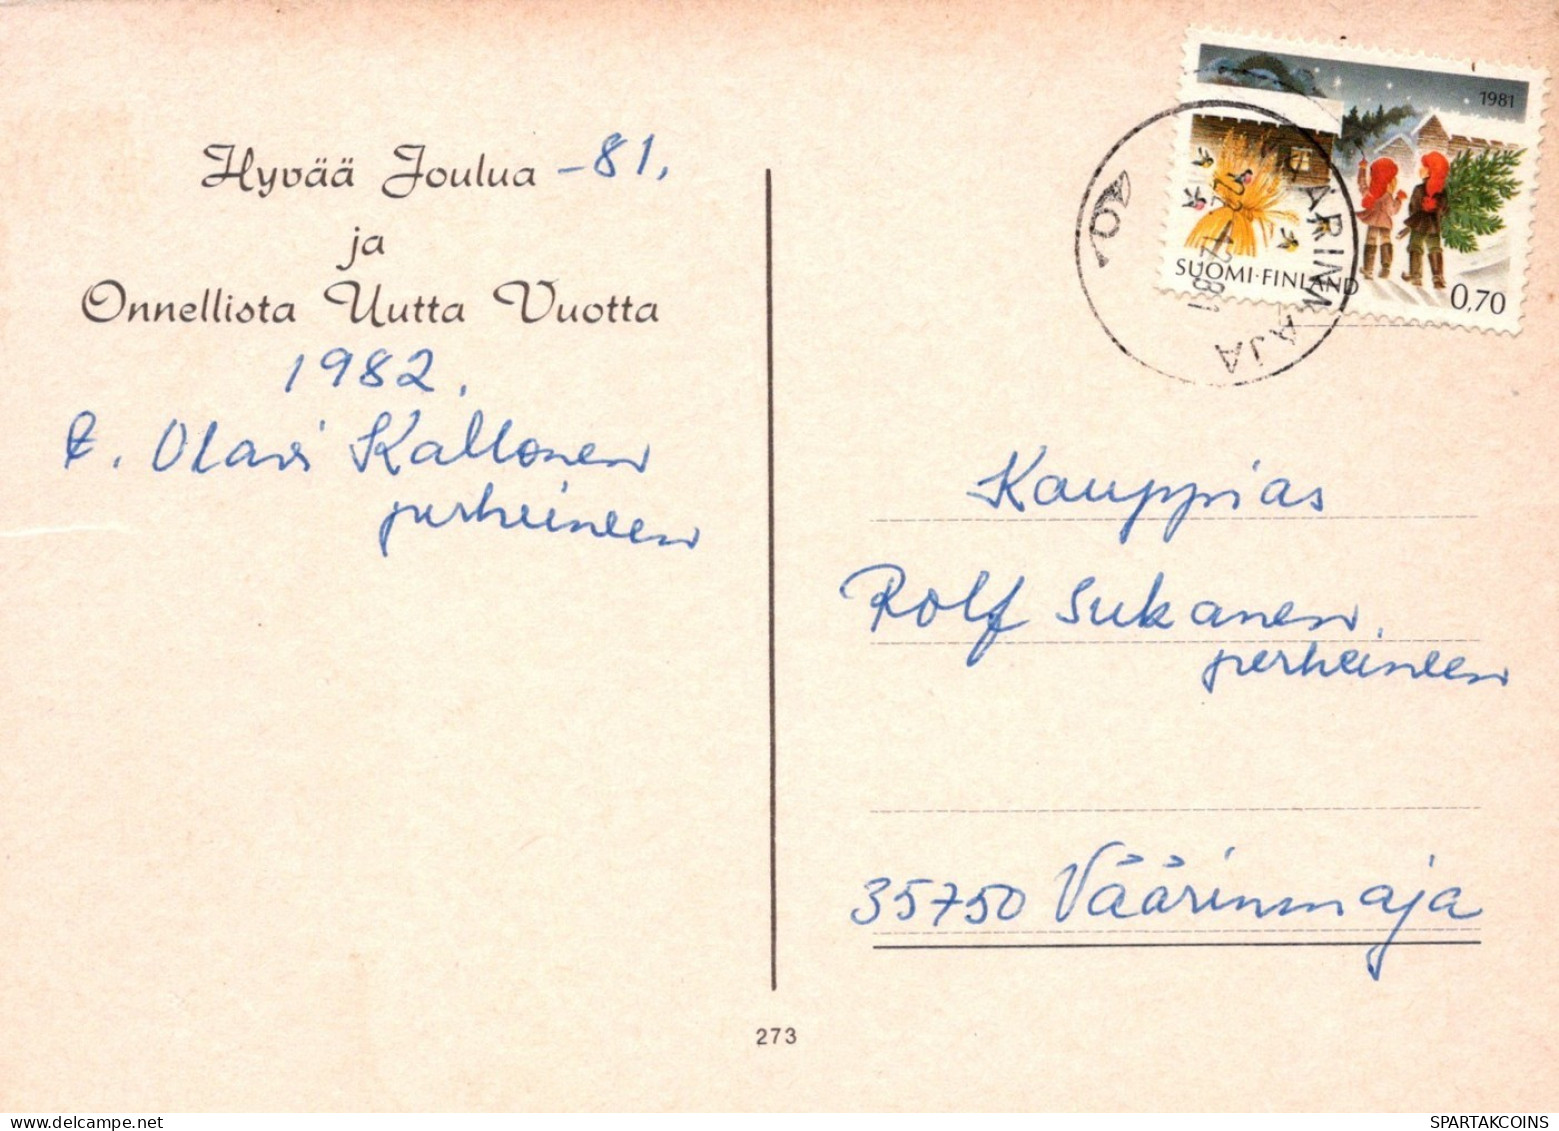 Hyvää Joulua -81.
ja
Onnellista Uutta Vuotta
1982.
Olavi Kallonen
perheineen
1981
SUOMI·FINLAND
0,70
VÄÄRINMAJA
Kauppias
Rolf Sukanen.
perheineen
35750 Väärinmaja
273
delcampe.net
SPARTAKCOINS